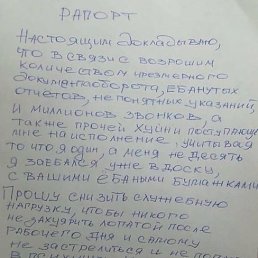 РАПОРТ
Настоящим докладываю,
что в связи с возросшим
количеством чрезмерного
документооборота, ебанутых
отчётов, непонятных указаний,
и миллионов звонков, а
также прочей хуйни поступающей
мне на исполнение, учитывая
то что я один, а меня не десять
я заебался уже в доску,
с вашими ебаными бумажками
Прошу снизить служебную
нагрузку, чтобы никого
не захуярить лопатой после
рабочего дня и самому
не застрелиться и не